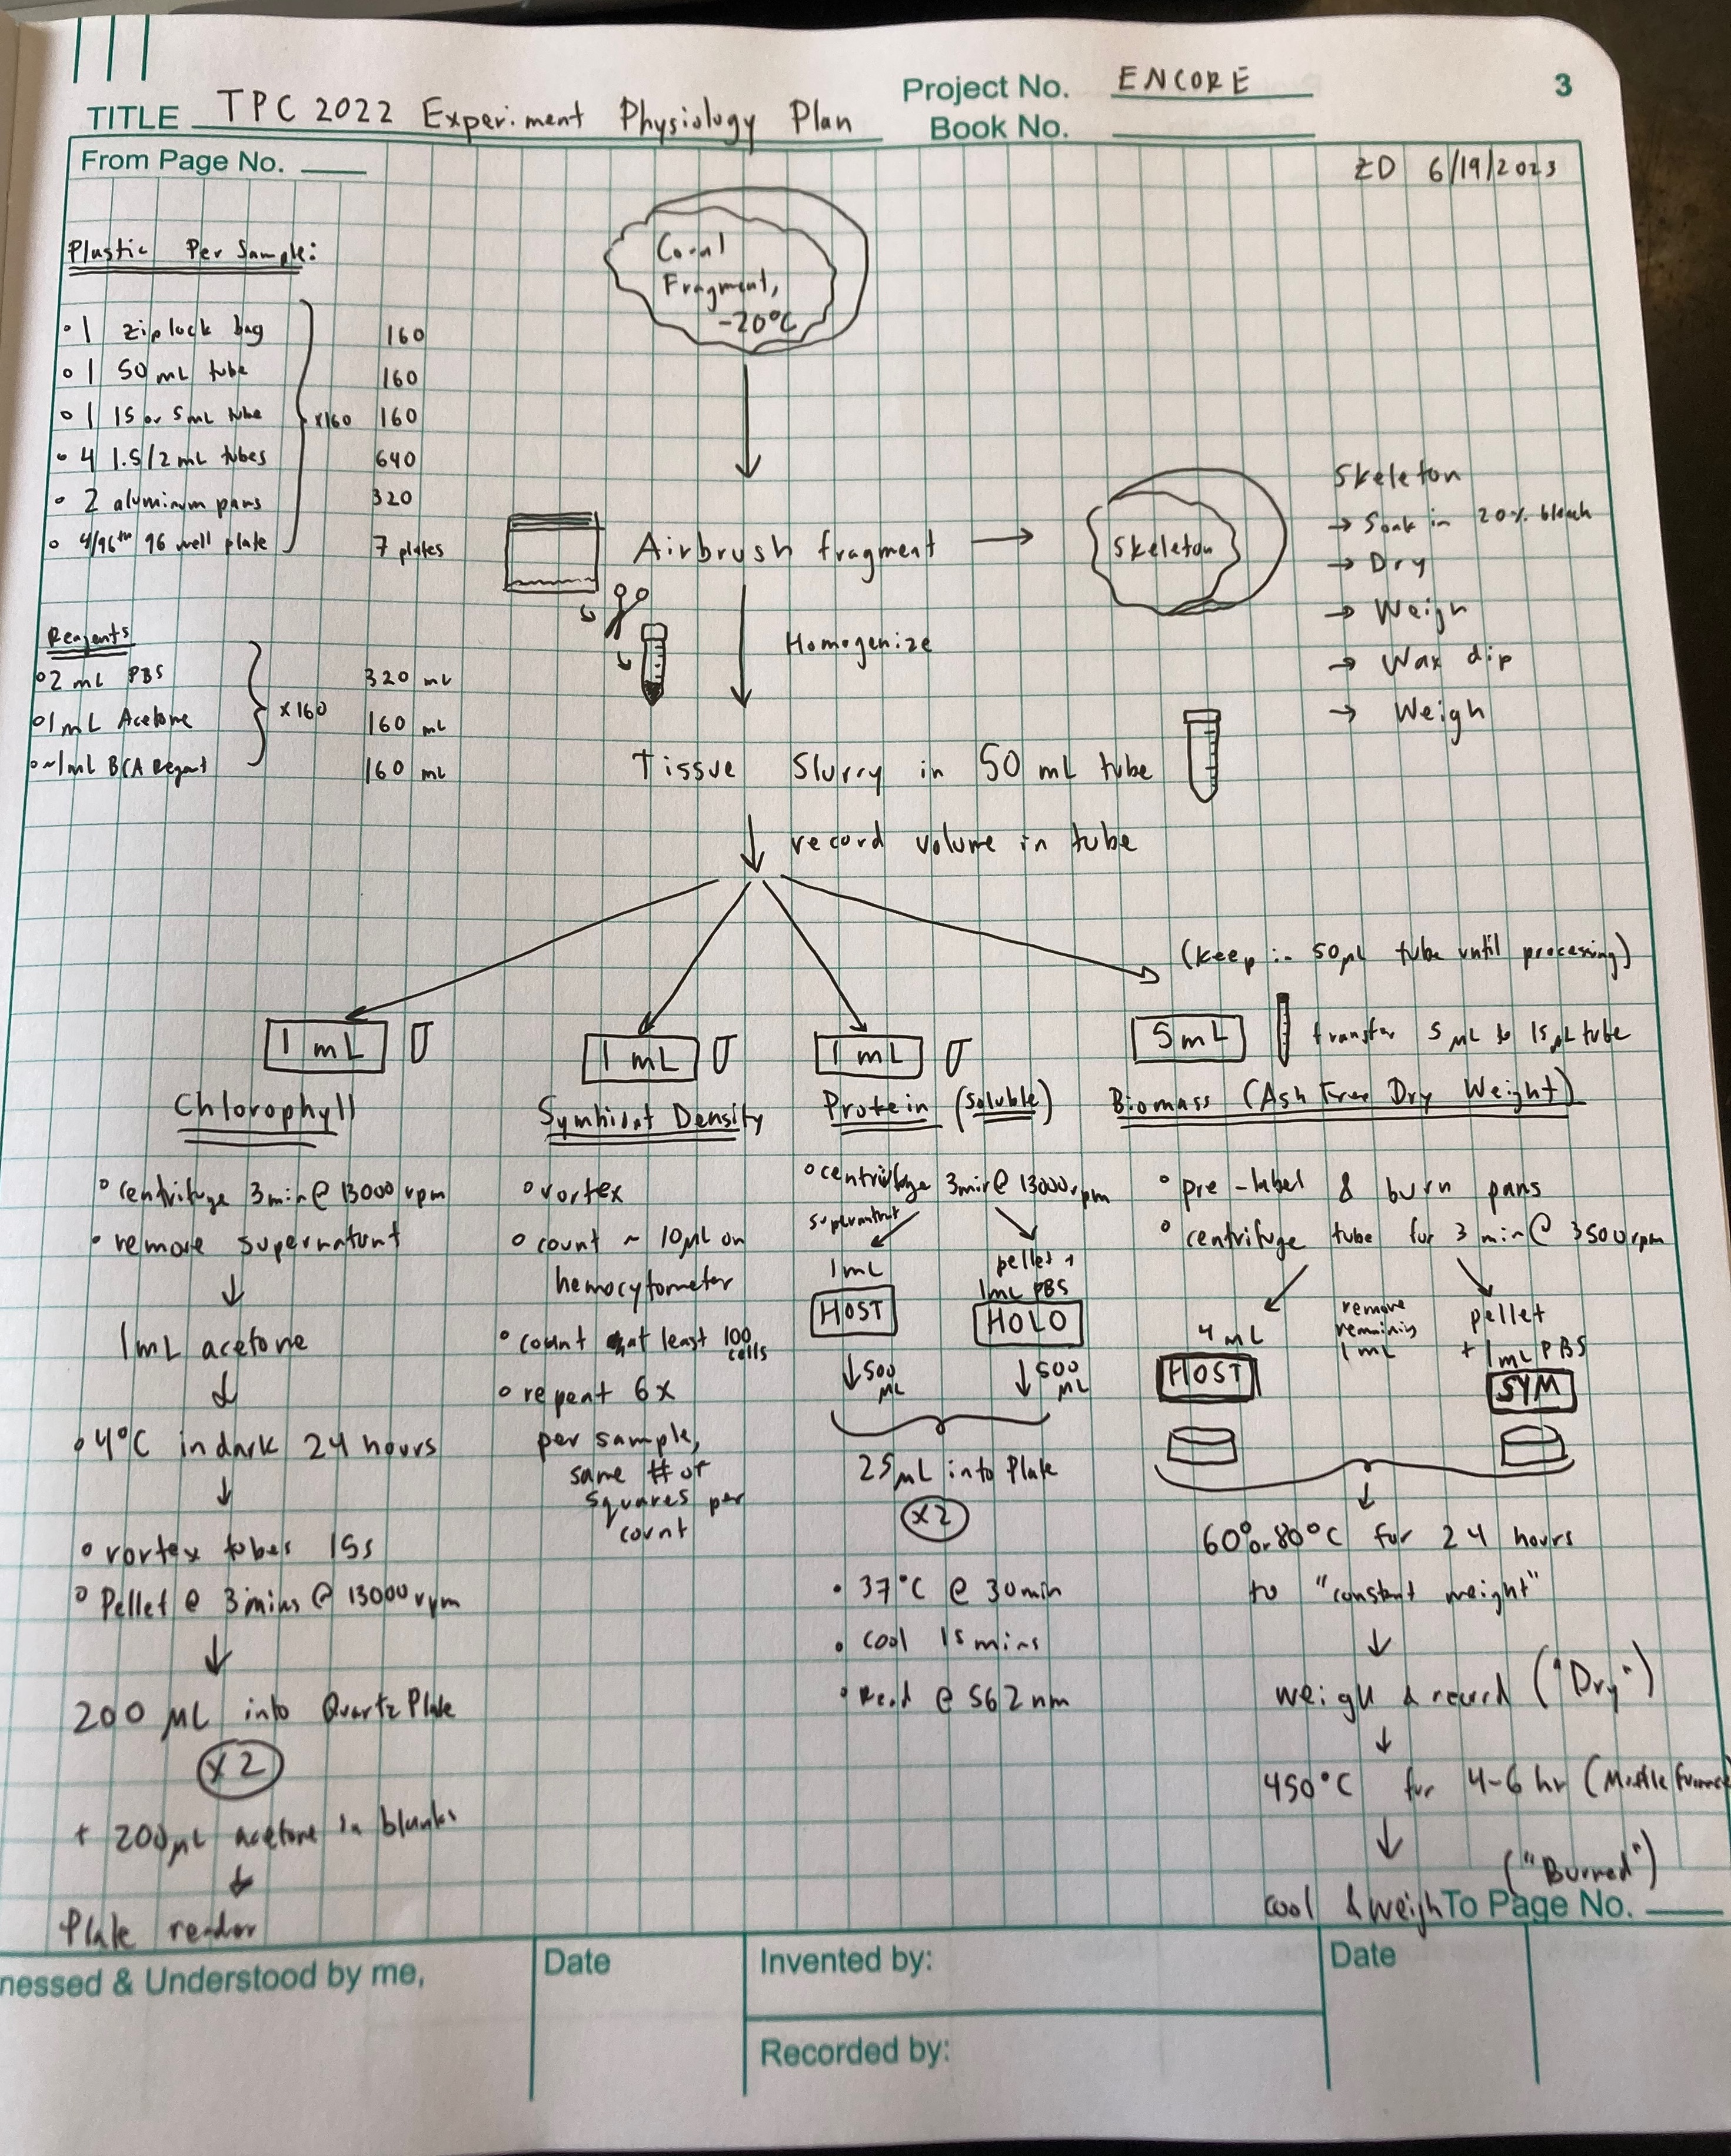 TITLE TPC 2022 Experiment Physiology Plan
Project No. ENCORE
Book No.
3
From Page No.
ZD 6/19/2023
Plastic Per Sample:
° 1 ziplock bag 160
° 1 50 mL tube 160
° 1 15 or 5mL tube x160 160
° 4 1.5/2 mL tubes 640
° 2 aluminum pans 320
° 4/96th 96 well plate 7 plates
Reagents
° 2 mL PBS 320 mL
° 1mL Acetone x160 160 mL
° ~1mL BCA Regent 160 mL
Coral
Fragment,
-20°C
Airbrush fragment →
Skeleton
Homogenize
Skeleton
→ Soak in 20% bleach
→ Dry
→ Weigh
→ Wax dip
→ Weigh
Tissue Slurry in 50 mL tube
↓ record volume in tube
(keep in 50mL tube until processing)
1 mL
Chlorophyll
° centrifuge 3min @ 13000 rpm
• remove supernatant
↓
1mL acetone
↓
• 4°C in dark 24 hours
↓
° vortex tubes 15s
° Pellet @ 3mins @ 13000 rpm
↓
200 µL into Quartz Plate
x2
+ 200µL acetone in blanks
↓
Plate reader
1 mL
Symbiont Density
° vortex
° count ~ 10µL on
hemocytometer
° count at least 100 cells
° repeat 6x
per sample,
same # of
squares per
count
1 mL
Protein (soluble)
° centrifuge 3min @ 13000 rpm
supernatant
1mL
HOST
↓ 500 µL
pellet +
1mL PBS
HOLO
↓ 500 µL
25µL into Plate
x2
• 37°C @ 30min
• cool 15 mins
• Read @ 562nm
5 mL
transfer 5 mL to 15mL tube
Biomass (Ash Free Dry Weight)
° pre-label & burn pans
° centrifuge tube for 3 min @ 3500 rpm
4 mL
HOST
remove
remaining
1 mL
pellet
+ 1mL PBS
SYM
↓
60° or 80°C for 24 hours
to "constant weight"
↓
weigh & record ("Dry")
↓
450°C for 4-6 hr (Muffle furnace
↓
("Burned")
cool & weigh
To Page No.
nessed & Understood by me,
Date
Invented by:
Date
Recorded by: